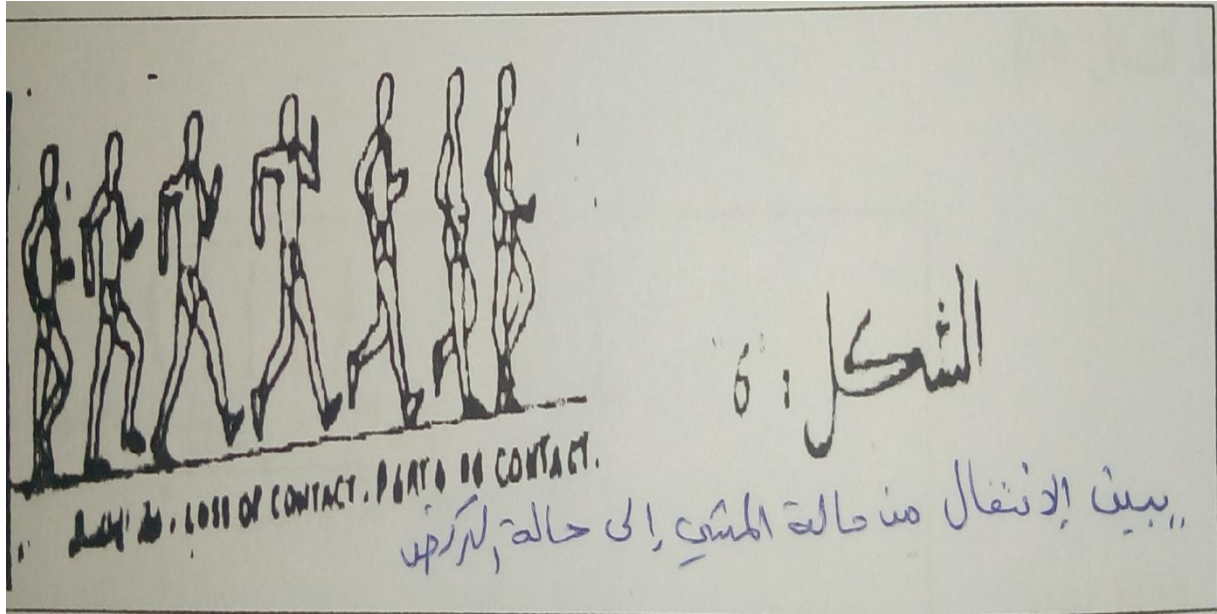 الشكل : 6
. LOSS OF CONTACT . PERTE DE CONTACT.
يبين الإنتقال من حالة المشي إلى حالة الركض